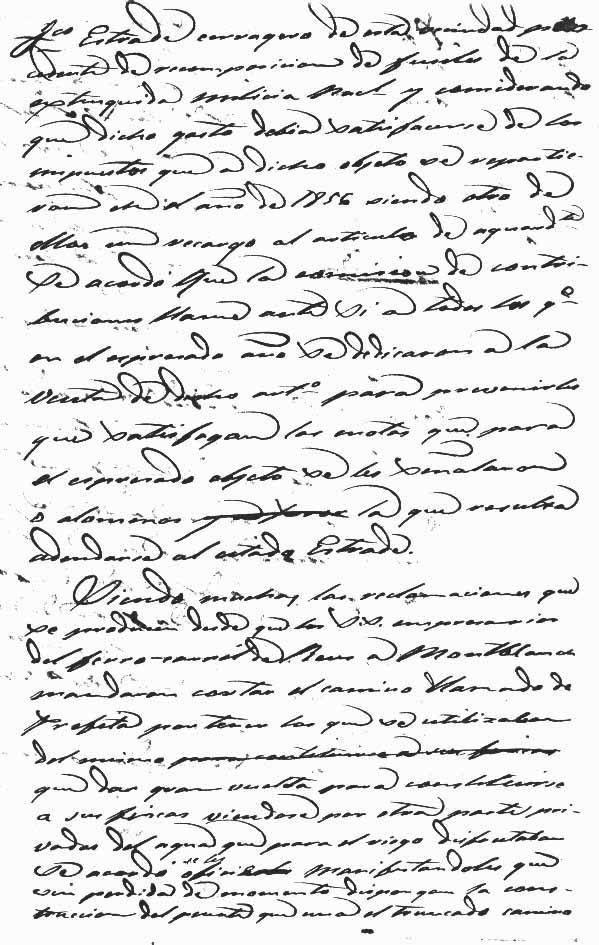 Fco Estrade cerragero de esta vecindad por
cuenta de recomposicion de fusiles de la
extinguida milicia Nacl y considerando
que dicho gasto debia satisfacerse de los
impuestos que a dicho objeto se repartie-
ron en el año de 1856 siendo otro de
ellos un recargo al articulo de aguardte
se acordó que la comision de contri-
buciones llame ante si a todos los qe
en el espresado año se dedicaron a la
venta de dicho arto para prevenirles
que satisfagan las cuotas que para
el espresado objeto se les señalaron
o alomenos la que resultra
adeudarse al citado Estrade.
Siendo muchas las reclamaciones que
se producen desde que los S.S. empresarios
del ferro-carril de Reus a Montblanch
mandaron cortar el camino llamado de
Profeta por tener los que se utilizaban
del mismo para constituirse a sus fincas
que dar gran vuelta para constituirse
a sus fincas viendose por otra parte pri-
vados del agua que para el riego disfrutaban
se acordó se les oficie manifestandoles que
sin perdida de momento dispongan la cons-
truccion del puente que una el truncado camino